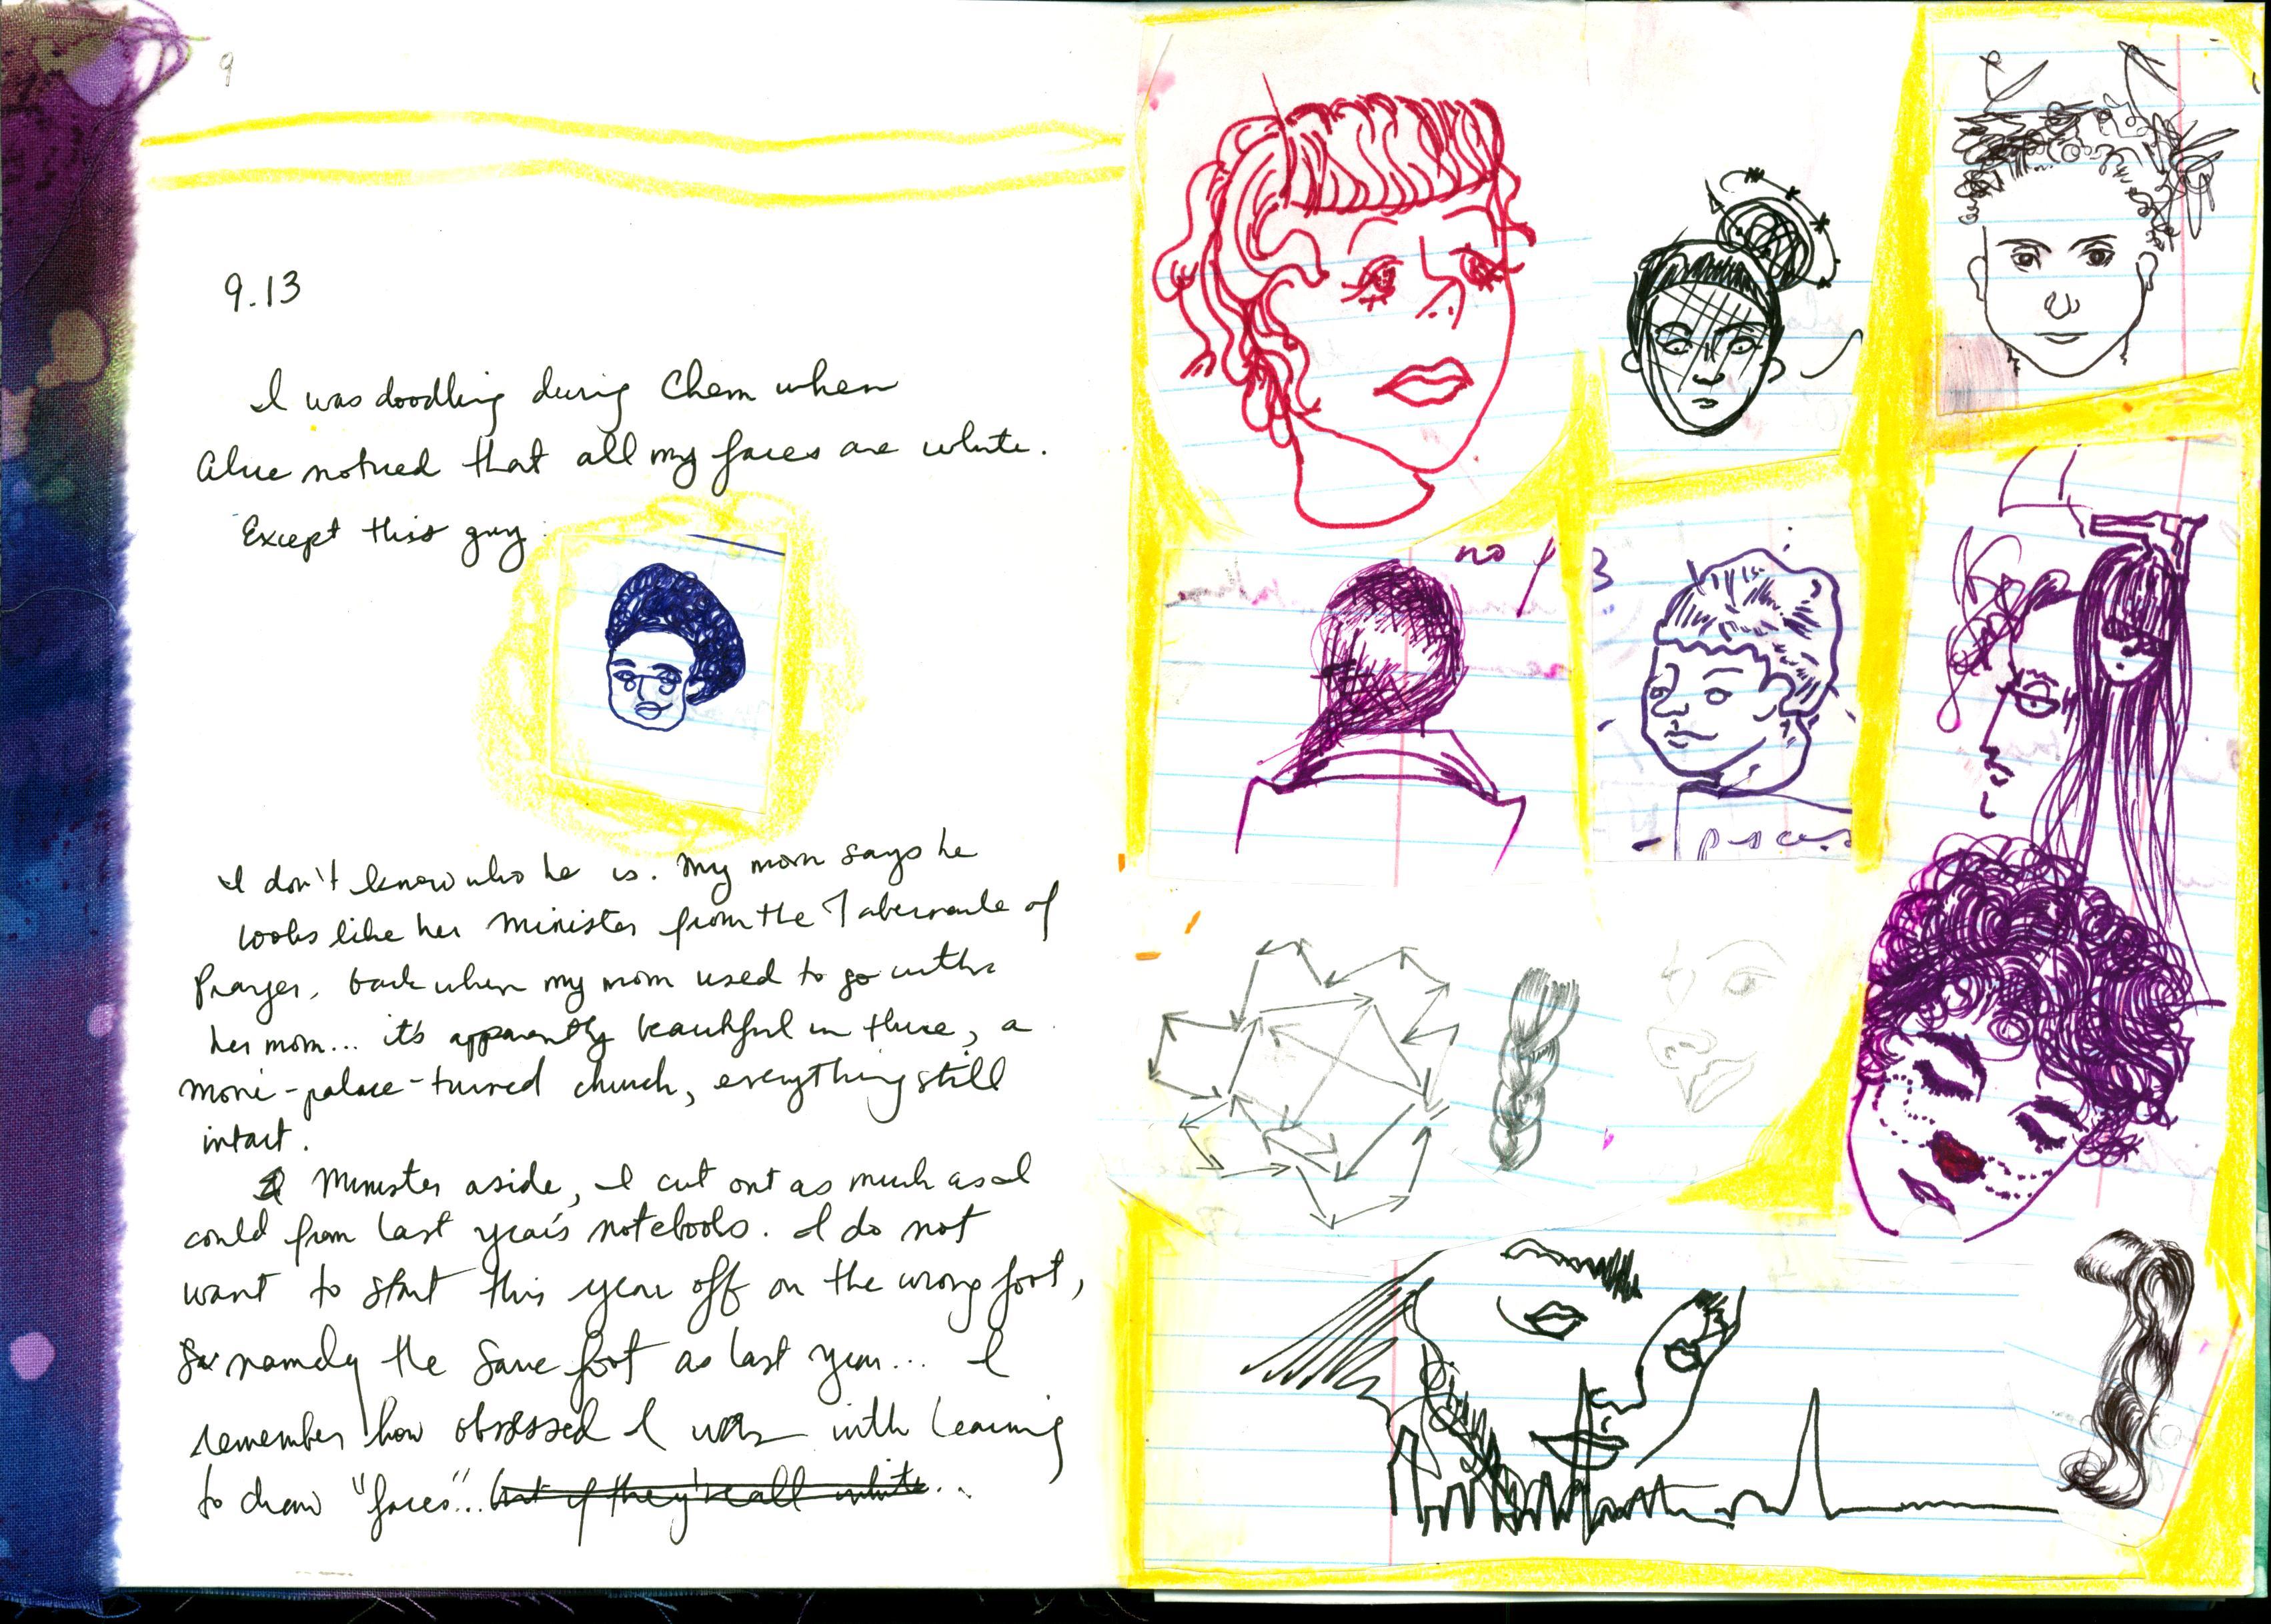 9
9.13
I was doodling during Chem when
Alice noticed that all my faces are white.
Except this guy:
I don't know who he is. My mom says he
looks like her minister from the Tabernacle of
Prayer, back when my mom used to go with
her mom... it's apparently beautiful in there, a
movie-palace-turned church, everything still
intact.
Minister aside, I cut out as much as I
could from last year's notebooks. I do not
want to start this year off on the wrong foot,
namely the same foot as last year... I
remember how obsessed I was with learning
to draw "faces"... but if they're all white...
no
3